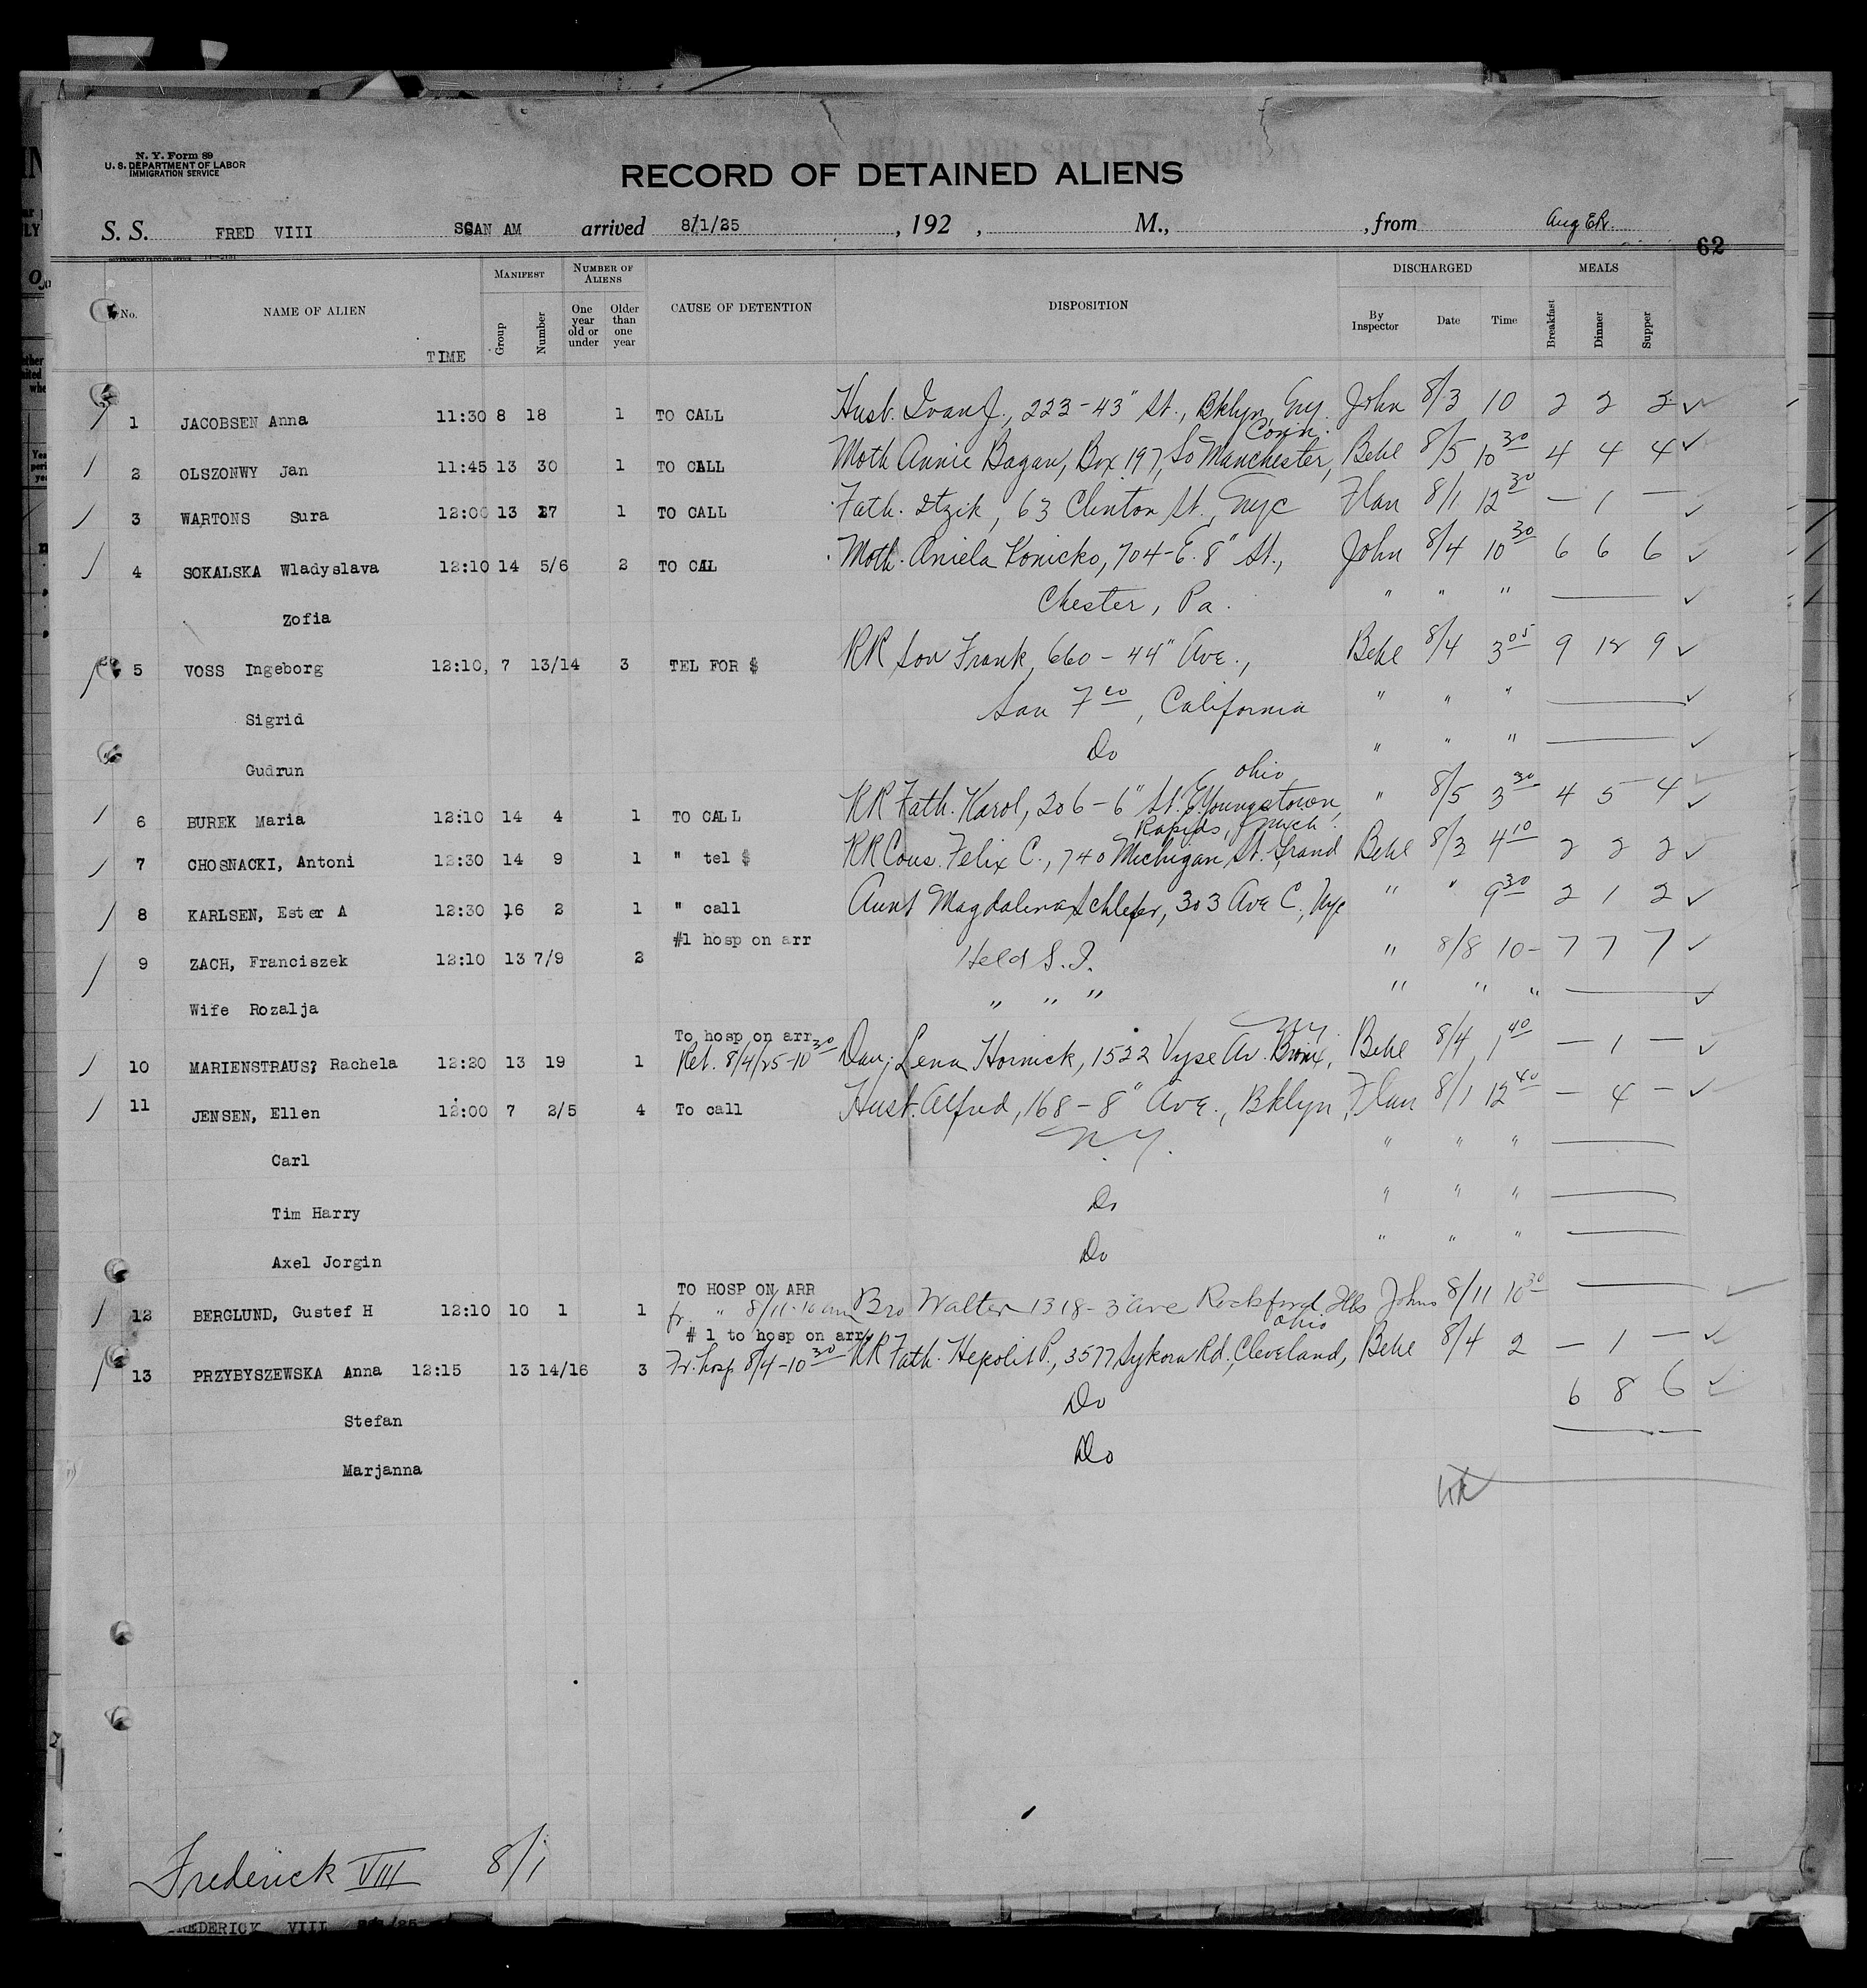 N. Y. Form 89
U. S. DEPARTMENT OF LABOR
IMMIGRATION SERVICE
RECORD OF DETAINED ALIENS
S. S. FRED VIII SCAN AM arrived 8/1/25 , 192 , M., , from
62
No. NAME OF ALIEN TIME MANIFEST Group Number NUMBER OF ALIENS One year old or under Older than one year CAUSE OF DETENTION DISPOSITION DISCHARGED By Inspector Date Time MEALS Breakfast Dinner Supper
1 JACOBSEN Anna 11:30 8 18 1 TO CALL Husb. Ivan J., 223-43" St., Bklyn, NY. John 8/3 10 2 2 2
Conn.
2 OLSZONWY Jan 11:45 13 30 1 TO CALL Moth Annie Bagan, Box 197, So Manchester, Behl 8/5 10 30 4 4 4
3 WARTONS Sura 12:00 13 27 1 TO CALL Fath. Itzik, 63 Clinton St., NYC Flan 8/1 12 30 — 1 —
4 SOKALSKA Wladyslava 12:10 14 5/6 2 TO CAL Moth. Aniela Konicko, 704-E. 8" St., John 8/4 10 30 6 6 6
Zofia Chester, Pa. " " "
5 VOSS Ingeborg 12:10, 7 13/14 3 TEL FOR $ RR Son Frank, 660-44" Ave., Behl 8/4 3 05 9 12 9
Sigrid San Fco, California " " "
Gudrun Do " " "
Ohio
6 BUREK Maria 12:10 14 4 1 TO CALL RR Fath. Karol, 206-6" St. E. Youngstown, " 8/5 3 30 4 5 4
Rapids, Mich.
7 CHOSNACKI, Antoni 12:30 14 9 1 " tel $ RR Cous. Felix C., 740 Michigan St. Grand Behl 8/3 4 10 2 2 2
8 KARLSEN, Ester A 12:30 16 2 1 " call Aunt Magdalina Schlefer, 303 Ave C, NYC " " 9 30 2 1 2
#1 hosp on arr
9 ZACH, Franciszek 12:10 13 7/9 2 Held S. I. " 8/8 10- 7 7 7
Wife Rozalja " " " " " "
To hosp on arr NY.
10 MARIENSTRAUS? Rachela 12:20 13 19 1 Ret. 8/4/25-10 30 Dau; Lena Hornick, 1522 Vyse Av. Bronx, Behl 8/4 1 40 — 1 —
11 JENSEN, Ellen 12:00 7 2/5 4 To call Husb. Alfred, 168-8" Ave., Bklyn, Flan 8/1 12 40 — 4 —
Carl N.Y. " " "
Tim Harry Do " " "
Axel Jorgin Do " " "
TO HOSP ON ARR
12 BERGLUND, Gustef H 12:10 10 1 1 fr. " 8/11-10 am Bro Walter 1318-3 Ave Rockford Ills John 8/11 10 30
# 1 to hosp on arr Ohio
13 PRZYBYSZEWSKA Anna 12:15 13 14/16 3 Fr. hosp 8/4-10 30 RR Fath. Hepolit P., 3577 Sykora Rd, Cleveland, Behl 8/4 2 — 1 —
Stefan Do 6 8 6
Marjanna Do
Frederick VIII 8/1
FREDERICK VIII